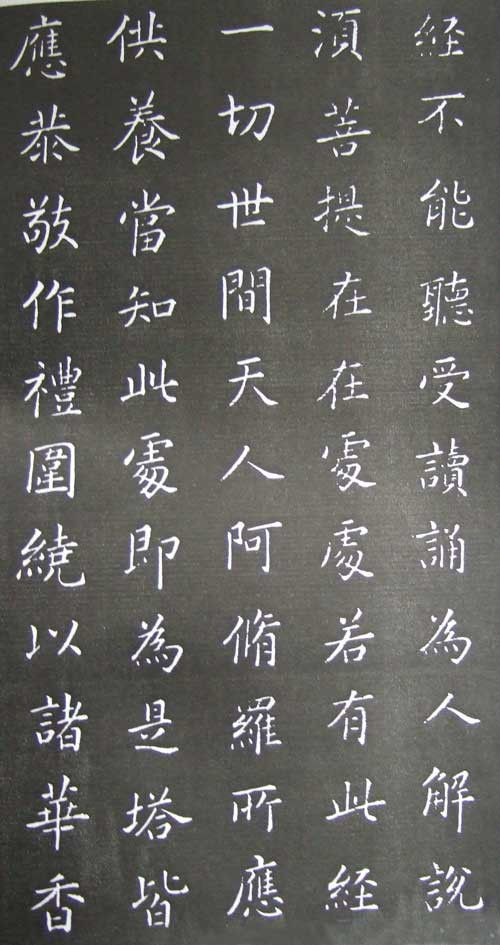 経不能聽受讀誦為人解說
湏菩提在在處處若有此経
一切世間天人阿脩羅所應
供養當知此處即為是塔皆
應恭敬作禮圍繞以諸華香